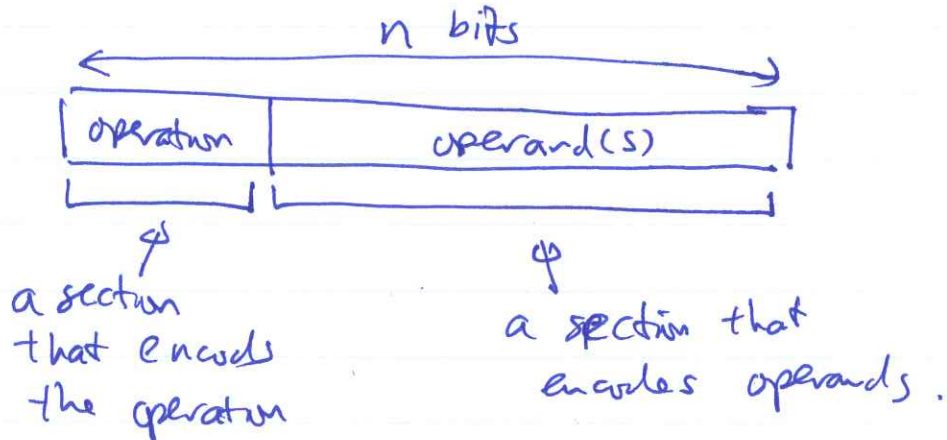 n bits
operation operand(s)
a section
that encods
the operation
a section that
encodes operands.